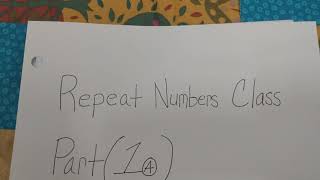 Repeat Numbers Class
Part (1④)